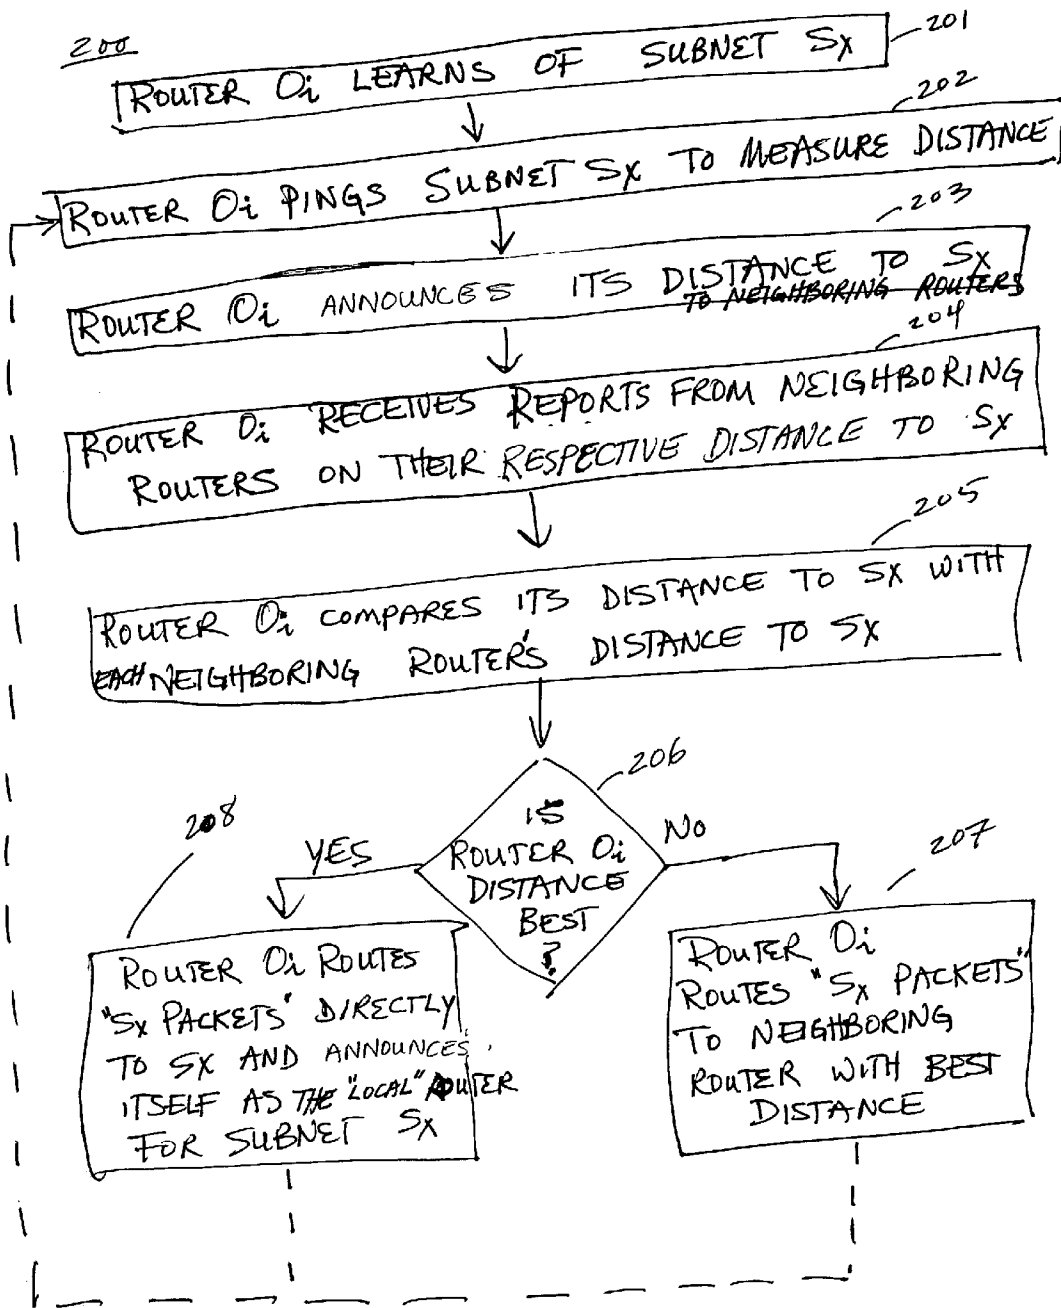 200
201
ROUTER Oi LEARNS OF SUBNET Sx
202
ROUTER Oi PINGS SUBNET Sx TO MEASURE DISTANCE
203
ROUTER Oi ANNOUNCES ITS DISTANCE TO Sx
TO NEIGHBORING ROUTERS
204
ROUTER Oi RECEIVES REPORTS FROM NEIGHBORING
ROUTERS ON THEIR RESPECTIVE DISTANCE TO Sx
205
ROUTER Oi COMPARES ITS DISTANCE TO Sx WITH
EACH NEIGHBORING ROUTER'S DISTANCE TO Sx
206
IS
ROUTER Oi
DISTANCE
BEST
?
YES
NO
208
ROUTER Oi ROUTES
"Sx PACKETS" DIRECTLY
TO Sx AND ANNOUNCES
ITSELF AS THE "LOCAL" ROUTER
FOR SUBNET Sx
207
ROUTER Oi
ROUTES "Sx PACKETS"
TO NEIGHBORING
ROUTER WITH BEST
DISTANCE